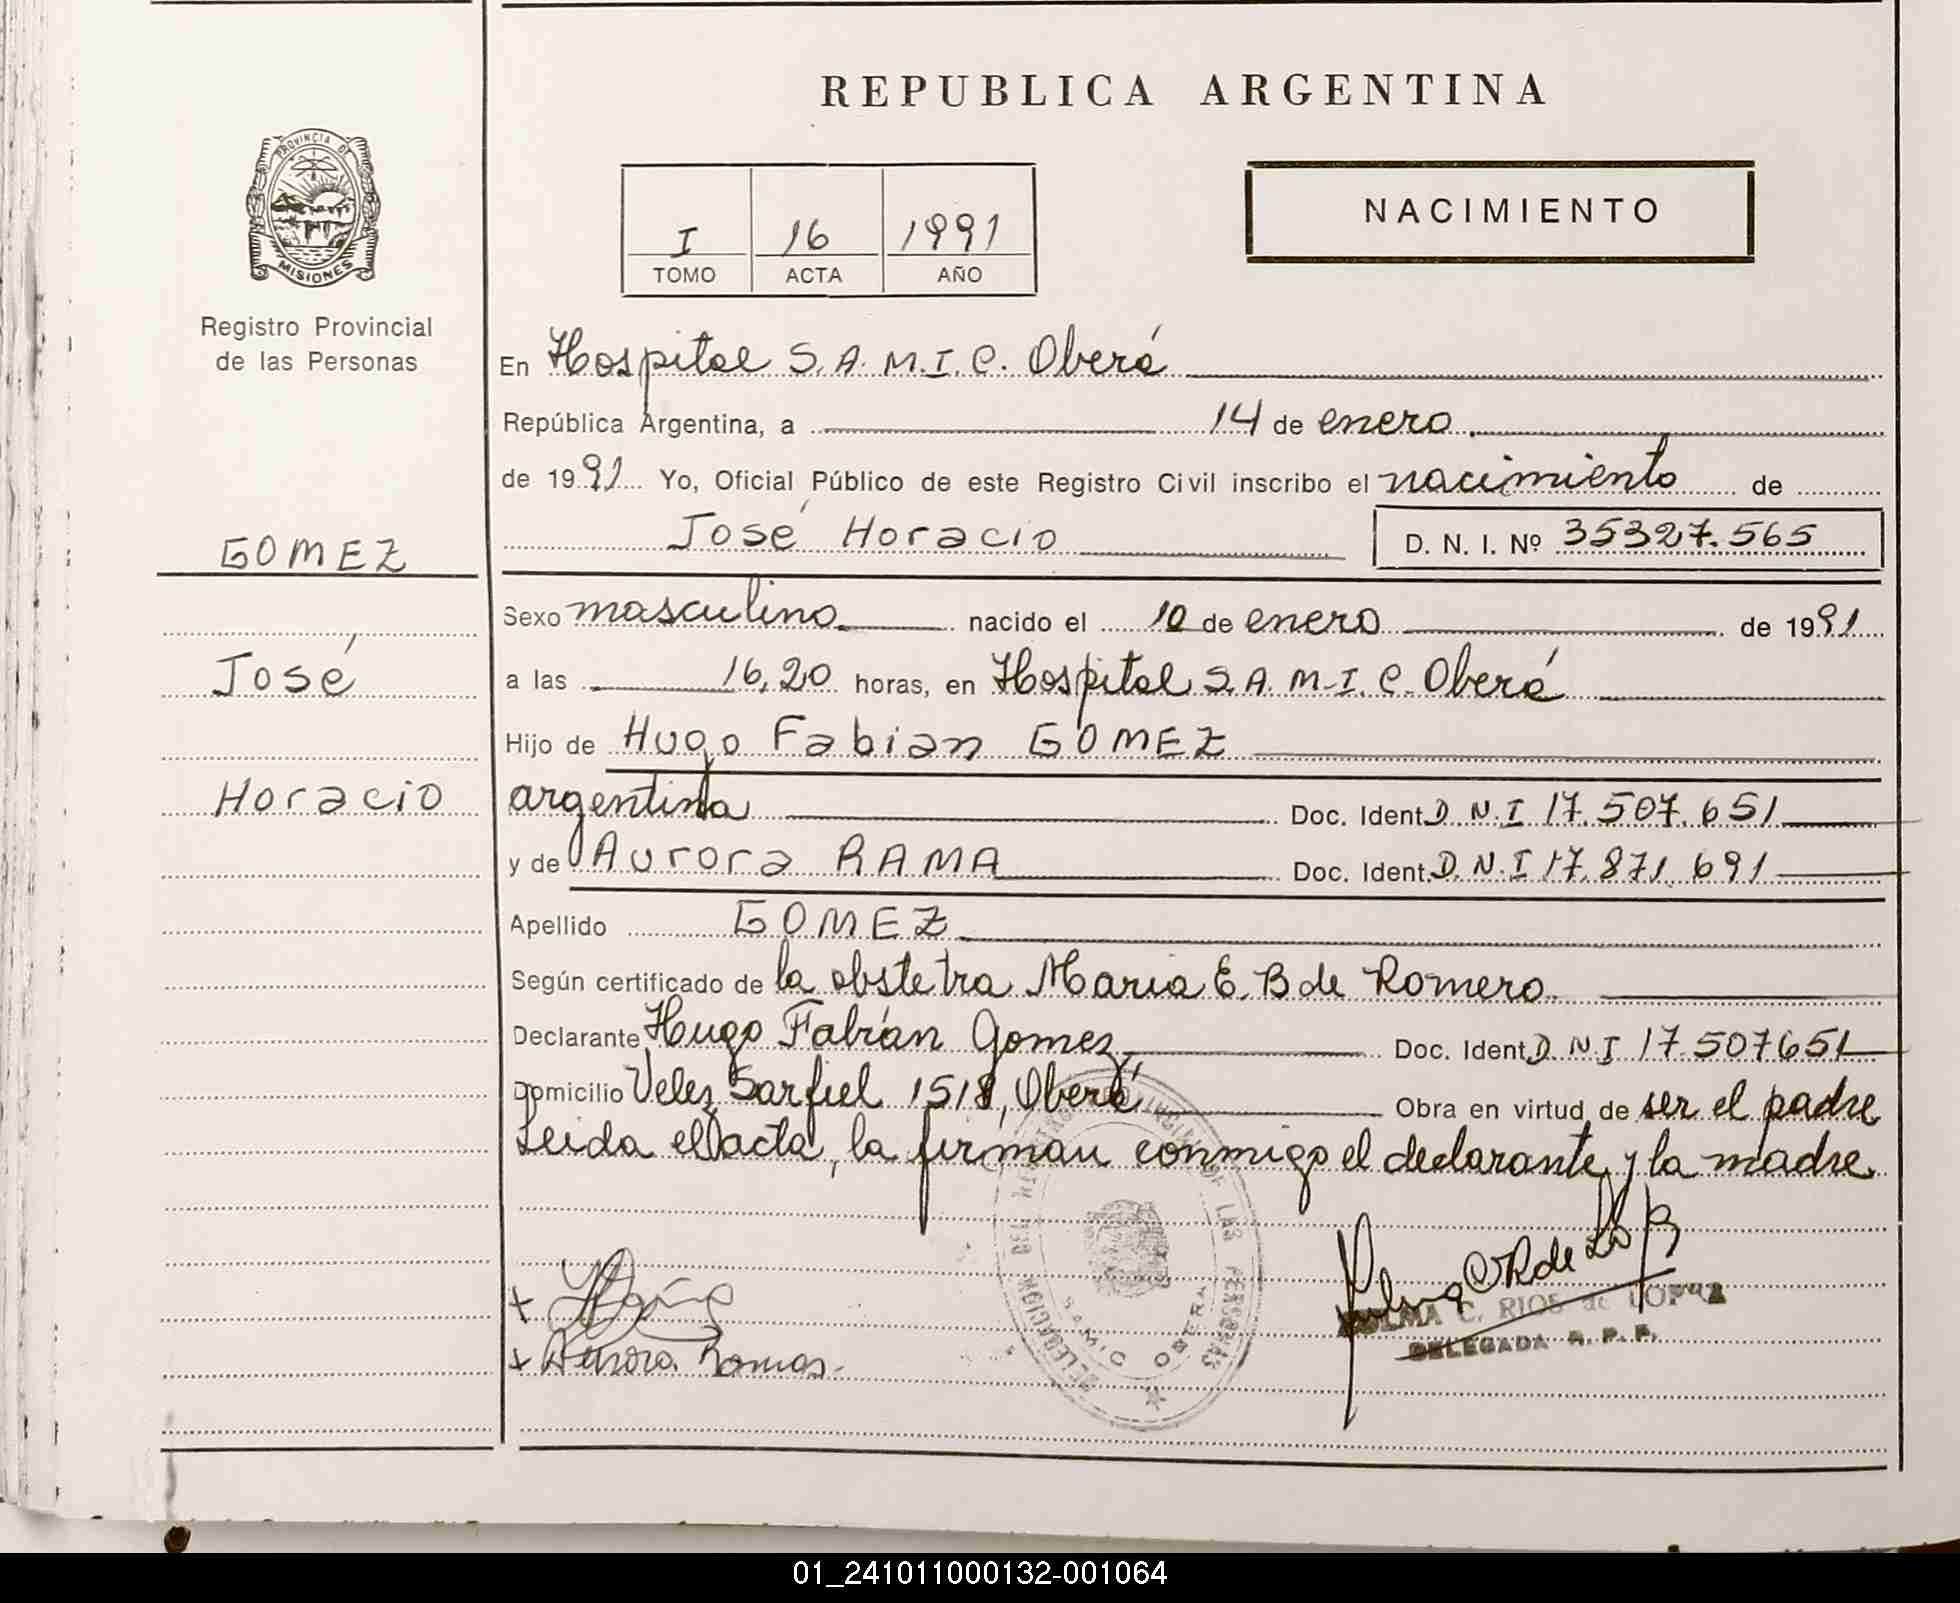 REPUBLICA ARGENTINA
PROVINCIA DE
MISIONES
Registro Provincial
de las Personas
I 16 1991
TOMO ACTA AÑO
NACIMIENTO
En Hospital S.A.M.I.C. Oberá
República Argentina, a 14 de enero
de 1991 Yo, Oficial Público de este Registro Civil inscribo el nacimiento de
José Horacio D. N. I. Nº 35327.565
GOMEZ
José
Horacio
Sexo masculino nacido el 10 de enero de 1991
a las 16,20 horas, en Hospital S.A.M.I.C. Oberá
Hijo de Hugo Fabian GOMEZ
argentina Doc. Ident. D N.I 17.507.651
y de Aurora RAMA Doc. Ident. D.N.I 17.871.691
Apellido GOMEZ
Según certificado de la obstetra Maria E. B de Romero
Declarante Hugo Fabián Gomez Doc. Ident. D N I 17.507651
Domicilio Velez Sarfiel 1518, Oberá Obra en virtud de ser el padre
Leida el acta, la firman conmigo el declarante y la madre
DELEGACION DEL REGISTRO PROVINCIAL DE LAS PERSONAS
SAMIC OBERA
Aurora Ramos.
ZULMA C. RIOS de LOPEZ
DELEGADA R. P. P.
01_241011000132-001064